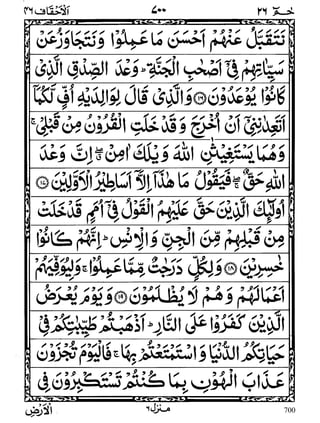 الاحقاف ٤٦ ٧٠٠ حٰمٓ ٢٦
نَتَقَبَّلُ عَنْهُمْ اَحْسَنَ مَا عَمِلُوْا وَنَتَجَاوَزُ عَنْ
سَيِّاٰتِهِمْ فِيْۤ اَصْحٰبِ الْجَنَّةِ ؕ وَعْدَ الصِّدْقِ الَّذِيْ
كَانُوْا يُوْعَدُوْنَ ﴿۱۶﴾ وَالَّذِيْ قَالَ لِوَالِدَيْهِ اُفٍّ لَّكُمَاۤ
اَتَعِدٰنِنِيْۤ اَنْ اُخْرَجَ وَقَدْ خَلَتِ الْقُرُوْنُ مِنْ قَبْلِيْ ۚ
وَهُمَا يَسْتَغِيْثٰنِ اللّٰهَ وَيْلَكَ اٰمِنْ ۖۗ اِنَّ وَعْدَ
اللّٰهِ حَقٌّ ۚۖ فَيَقُوْلُ مَا هٰذَاۤ اِلَّاۤ اَسَاطِيْرُ الْاَوَّلِيْنَ ﴿۱۷﴾
اُولٰٓئِكَ الَّذِيْنَ حَقَّ عَلَيْهِمُ الْقَوْلُ فِيْۤ اُمَمٍ قَدْ خَلَتْ
مِنْ قَبْلِهِمْ مِّنَ الْجِنِّ وَالْاِنْسِ ؕ اِنَّهُمْ كَانُوْا
خٰسِرِيْنَ ﴿۱۸﴾ وَلِكُلٍّ دَرَجٰتٌ مِّمَّا عَمِلُوْا ۚ وَلِيُوَفِّيَهُمْ
اَعْمَالَهُمْ وَهُمْ لَا يُظْلَمُوْنَ ﴿۱۹﴾ وَيَوْمَ يُعْرَضُ
الَّذِيْنَ كَفَرُوْا عَلَي النَّارِ ؕ اَذْهَبْتُمْ طَيِّبٰتِكُمْ فِيْ
حَيَاتِكُمُ الدُّنْيَا وَاسْتَمْتَعْتُمْ بِهَا ۚ فَالْيَوْمَ تُجْزَوْنَ
عَذَابَ الْهُوْنِ بِمَا كُنْتُمْ تَسْتَكْبِرُوْنَ فِي
الْاَرْضِ منزل ٦ 700